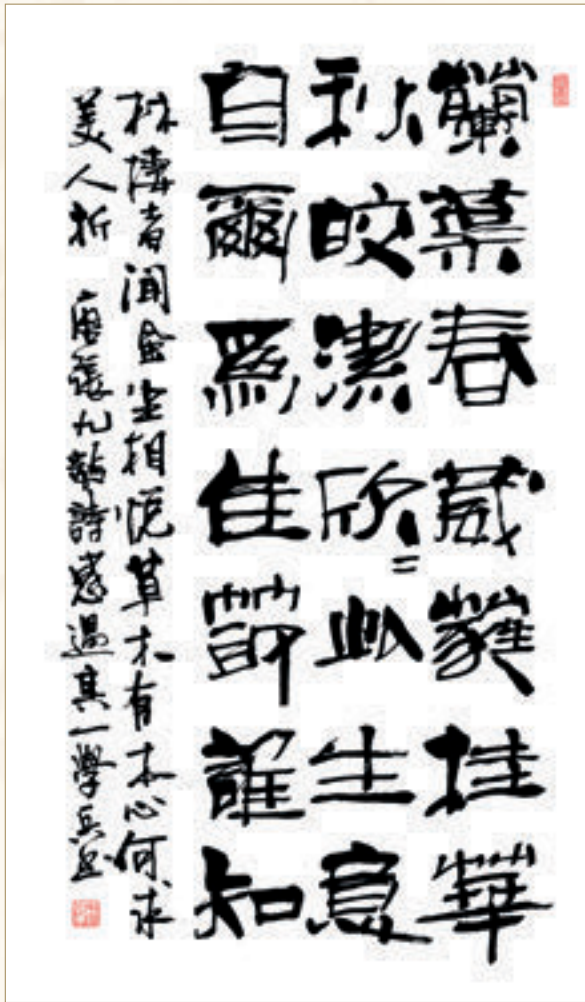 蘭葉春葳蕤桂華
秋皎潔欣=此生意
自爾爲佳節誰知
林棲者聞風坐相悅草木有本心何求
美人折 唐張九齡詩感遇其一學兵書